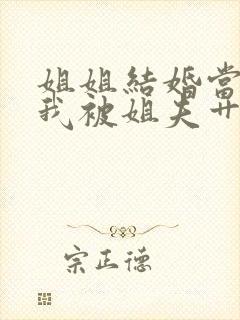 姐姐結婚當
我被姐夫
宗正德